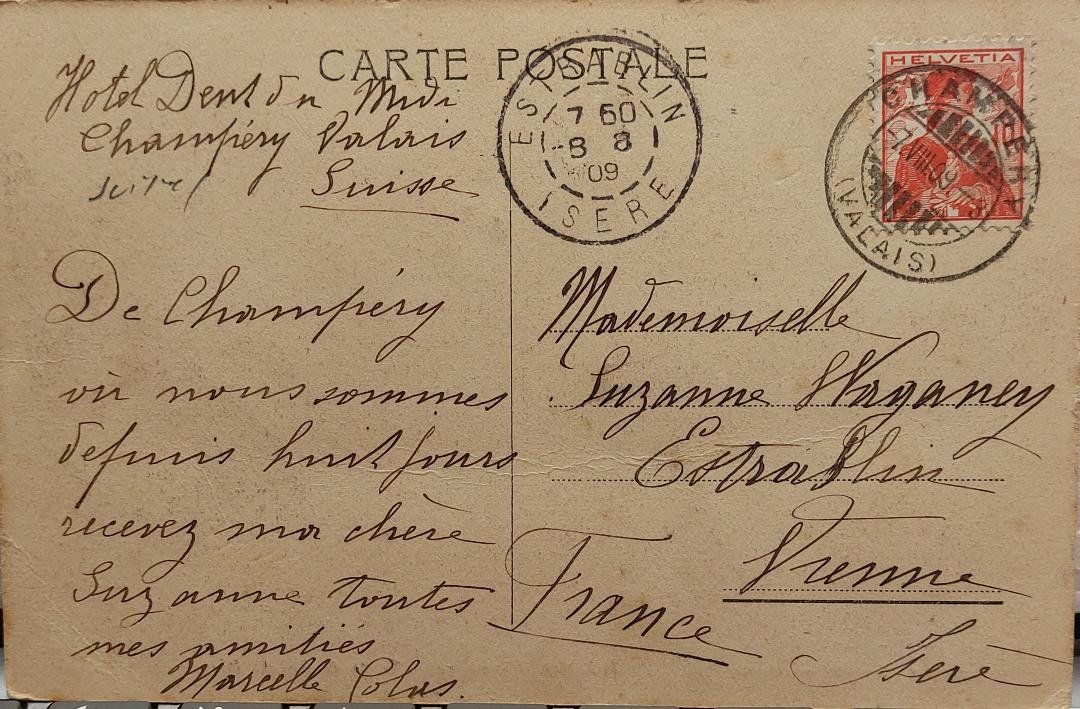 CARTE POSTALE
Hotel Dent du Midi
Champéry Valais
Suisse
De Champéry
où nous sommes
depuis huit jours
recevez ma chère
Suzanne toutes
mes amitiés
Marcelle Colas.
ESTRABLIN
7 60
8 8
09
ISERE
HELVETIA
CHAMPÉRY
7.VIII.09
(VALAIS)
Mademoiselle
Suzanne Waganey
Estrablin
Vienne
France
Isère